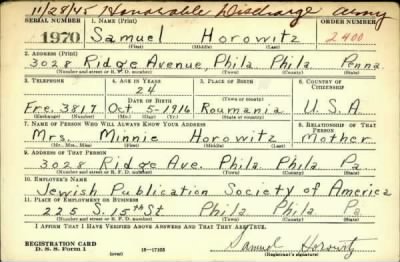 11/28/45 Honorable Discharge Army
SERIAL NUMBER 1. NAME (Print) ORDER NUMBER
1970 Samuel Horowitz 2400
(First) (Middle) (Last)
2. ADDRESS (Print)
3028 Ridge Avenue, Phila Phila Penna
(Number and street or R. F. D. number) (Town) (County) (State)
3. TELEPHONE 4. AGE IN YEARS 5. PLACE OF BIRTH 6. COUNTRY OF CITIZENSHIP
24
DATE OF BIRTH (Town or county)
Fre. 3817 Oct 5-1916 Roumania U.S.A
(Exchange) (Number) (Mo.) (Day) (Yr.) (State or country)
7. NAME OF PERSON WHO WILL ALWAYS KNOW YOUR ADDRESS 8. RELATIONSHIP OF THAT PERSON
Mrs. Minnie Horowitz Mother
(Mr., Mrs., Miss) (First) (Middle) (Last)
9. ADDRESS OF THAT PERSON
3028 Ridge Ave. Phila Phila Pa
(Number and street or R. F. D. number) (Town) (County) (State)
10. EMPLOYER'S NAME
Jewish Publication Society of America
11. PLACE OF EMPLOYMENT OR BUSINESS
225 S. 15th St Phila Phila Pa
(Number and street or R. F. D. number) (Town) (County) (State)
I AFFIRM THAT I HAVE VERIFIED ABOVE ANSWERS AND THAT THEY ARE TRUE.
REGISTRATION CARD
D. S. S. Form 1 16-17105 (over) Samuel Horowitz
(Registrant's signature)